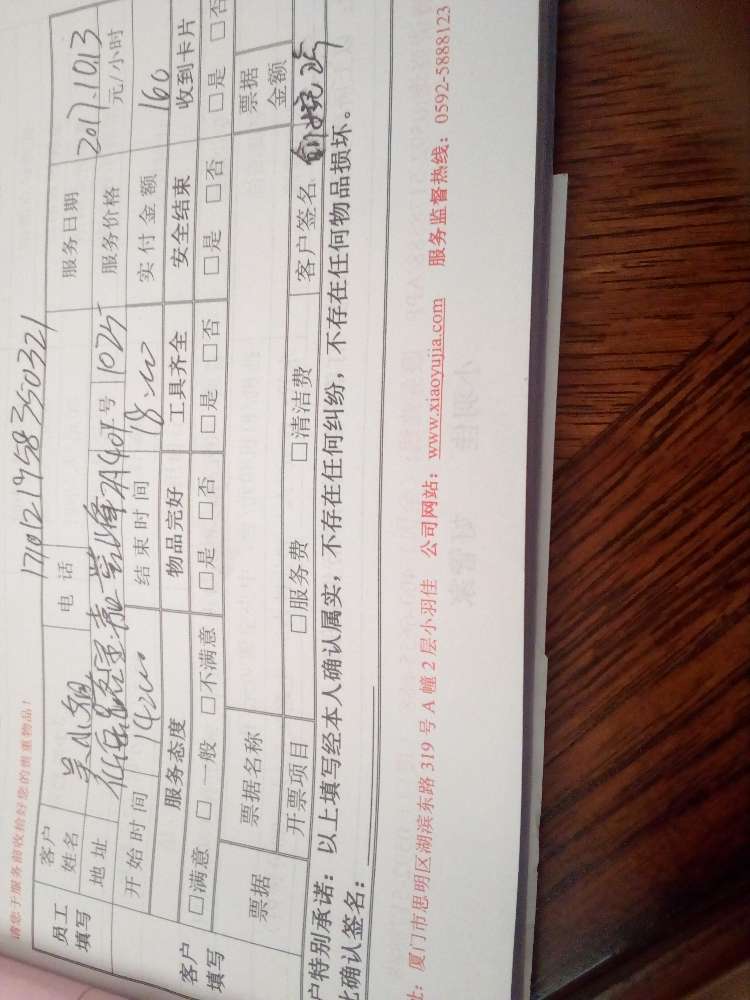 请您于服务前收拾好您的贵重物品！
员工填写 客户姓名 电话 服务日期 2017.10.13
地址 号 1025 服务价格 元/小时
开始时间 14:00 结束时间 18:00 实付金额 160
客户填写 服务态度 物品完好 工具齐全 安全结束 收到卡片
□满意 □一般 □不满意 □是 □否 □是 □否 □是 □否 □是 □否
票据 票据名称 票据金额
开票项目 □服务费 □清洁费 客户签名
户特别承诺：以上填写经本人确认属实，不存在任何纠纷，不存在任何物品损坏。
此确认签名：
址：厦门市思明区湖滨东路 319 号 A 幢 2 层小羽佳 公司网站：www.xiaoyujia.com 服务监督热线：0592-5888123